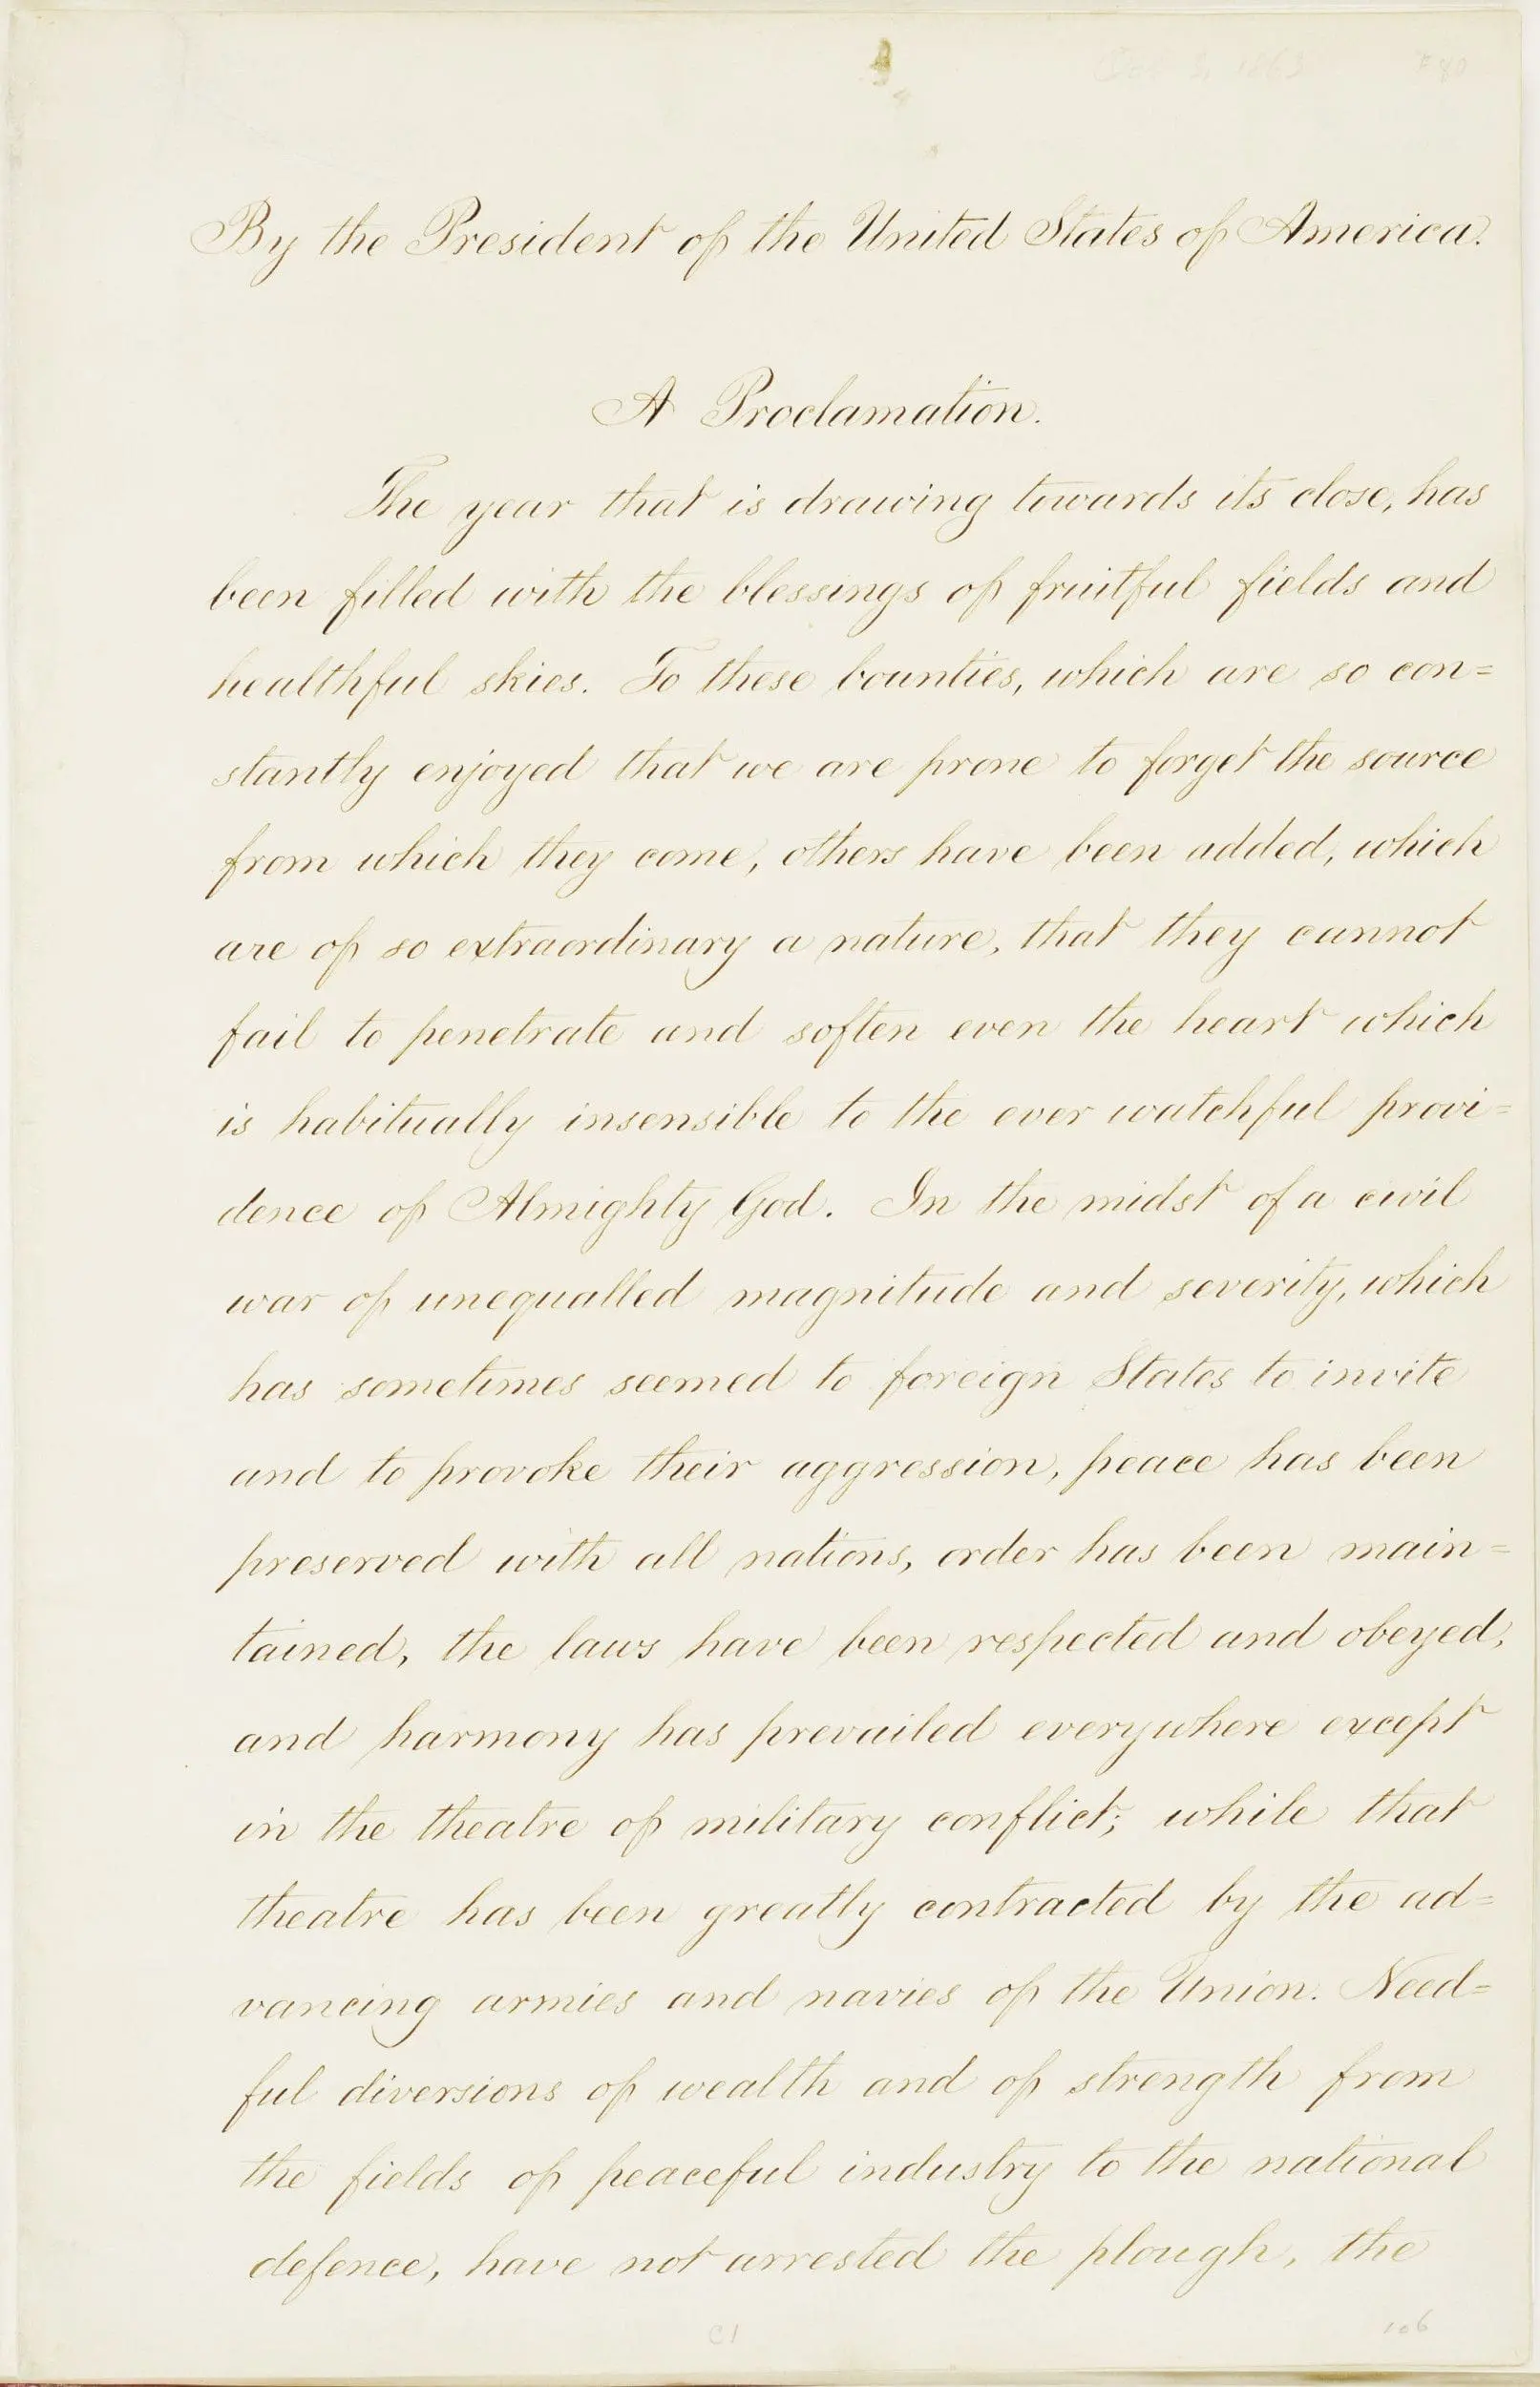 By the President of the United States of America.
A Proclamation.
The year that is drawing towards its close, has
been filled with the blessings of fruitful fields and
healthful skies. To these bounties, which are so con=
stantly enjoyed that we are prone to forget the source
from which they come, others have been added, which
are of so extraordinary a nature, that they cannot
fail to penetrate and soften even the heart which
is habitually insensible to the ever watchful provi=
dence of Almighty God. In the midst of a civil
war of unequalled magnitude and severity, which
has sometimes seemed to foreign States to invite
and to provoke their aggression, peace has been
preserved with all nations, order has been main=
tained, the laws have been respected and obeyed,
and harmony has prevailed everywhere except
in the theatre of military conflict; while that
theatre has been greatly contracted by the ad=
vancing armies and navies of the Union. Need=
ful diversions of wealth and of strength from
the fields of peaceful industry to the national
defence, have not arrested the plough, the
C1
106